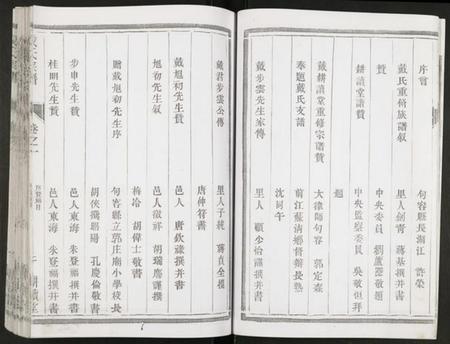 序言 句容縣長湘江 許榮
戴氏重脩族譜叙 里人劍青 蔣基撰并書
贊 中央委員 劉蘆隱敬題
耕讀堂譜贊 中央監察委員 吳敬恒拜
題
戴耕讀堂重修宗譜贊 大律師句容 郭定森
奉題戴氏支譜 前江蘇清鄉督辦長塾
沈同午
戴步雲先生家傳 里人 顧少 謹撰并書
戴君步雲公傳 里人子純 蔣貞金撰
唐仲符書
戴旭初先生贊 邑人 唐欽 謹撰并書
旭初先生叙 邑人徽祥 胡瑞 謹撰
梅冷 胡偉士敬書
贈戴旭初先生序 句容縣立郭庄廟小學校長
胡俠 鄂陽 孔慶倫敬書
步申先生贊 邑人東海 朱登瀛撰并書
桂明先生贊 邑人東海 朱登瀛撰并書
戴氏宗譜 卷之一
耕讀堂